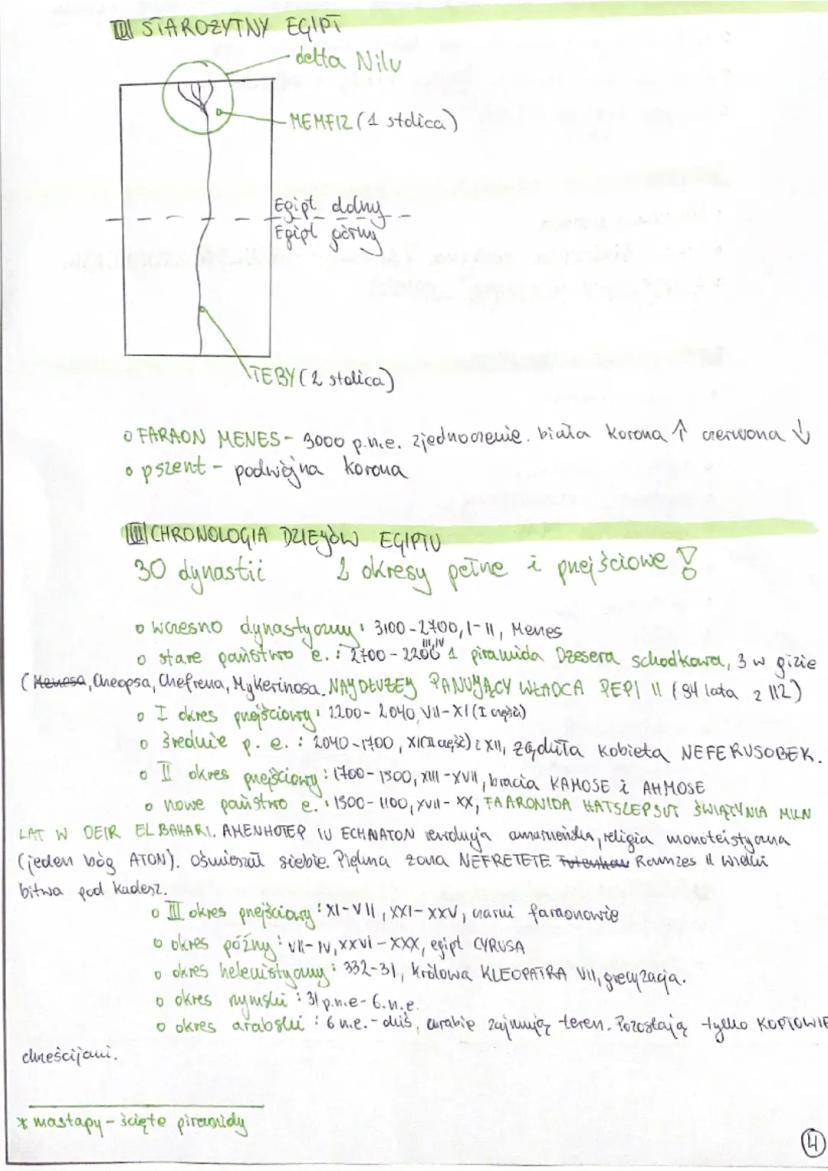 II STAROŻYTNY EGIPT
delta Nilu
MEMFIZ (1 stolica)
Egipt dolny
Egipt górny
TEBY (2 stolica)
FARAON MENES - 3000 p.n.e. zjednoczenie. biała korona ↑ czerwona ↓
pszent - podwójna korona
III CHRONOLOGIA DZIEJÓW EGIPTU
30 dynastii 2 okresy pełne i przejściowe!
wczesno dynastyczny: 3100-2700, I-II, Menes
stare państwo e.: 2700-2200 III, IV 1 piramida Dżesera schodkowa, 3 w gizie
(Menesa, Cheopsa, Chefrena, Mykerinosa. NAJDŁUŻEJ PANUJĄCY WŁADCA PEPI II (94 lata z 112)
I okres przejściowy: 2200-2040, VII-XI (I część)
średnie p. e.: 2040-1700, XI (II część) i XII, rządziła kobieta NEFERUSOBEK.
II okres przejściowy: 1700-1500, XIII-XVII, bracia KAMOSE i AHMOSE
nowe państwo e.: 1500-1100, XVII-XX, FAARONIDA HATSZEPSUT ŚWIĄTYNIA MILN
LAT W DEIR EL BAHARI. AMENHOTEP IV ECHNATON rewolucja amarneńska, religia monoteistyczna
(jeden bóg ATON). Ośmieszał siebie. Piękna żona NEFRETETE. Ramzes II Wielki
bitwa pod Kadesz.
III okres przejściowy: XI-VII, XXI-XXV, czarni faraonowie
okres późny: VII-IV, XXVI-XXX, egipt CYRUSA
okres helenistyczny: 332-31, królowa KLEOPATRA VII, grecyzacja.
okres rzymski: 31 p.n.e-6.n.e.
okres arabski: 6 n.e.-dziś, arabie zajmują teren. Pozostają tylko KOPTOWIE
chrześcijani.
* mastapy - ścięte piramidy
4